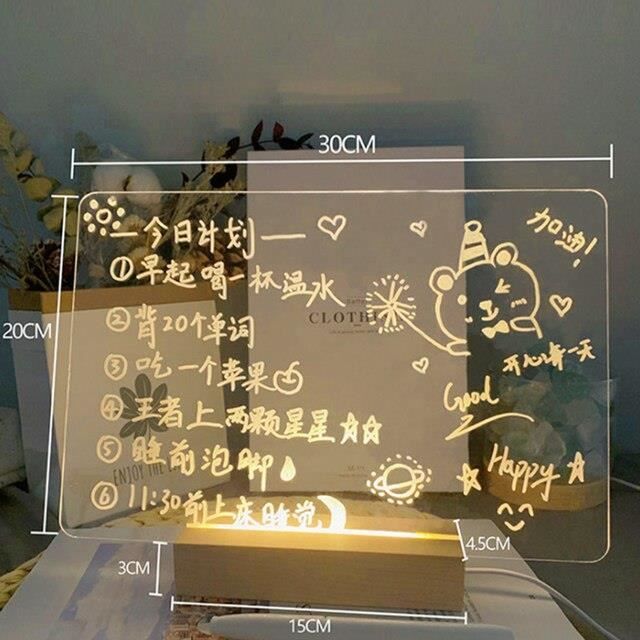 30CM
20CM
一今日计划一
①早起喝一杯温水
②背20个单词
③吃一个苹果
④王者上两颗星星
⑤睡前泡脚
⑥11:30前上床睡觉
加油!
开心每一天
Good
Happy
CLOTHI
ENJOY THE
3CM
15CM
4.5CM